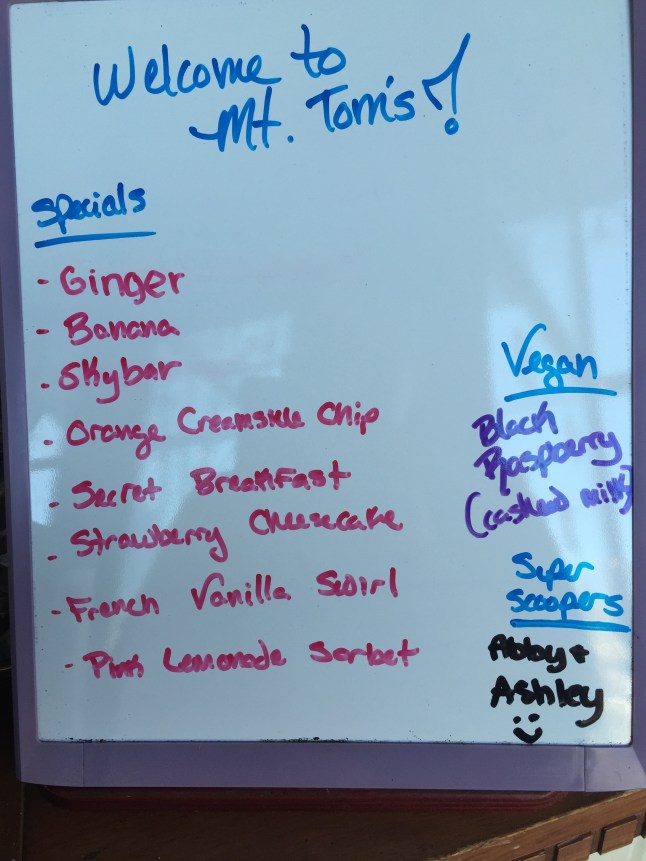 Welcome to
Mt. Tom's!
Specials
- Ginger
- Banana
- Skybar
- Orange Creamsicle Chip
- Secret Breakfast
- Strawberry Cheesecake
- French Vanilla Swirl
- Pink Lemonade Sorbet
Vegan
Black
Raspberry
(cashew milk)
Super
Scoopers
Abby +
Ashley